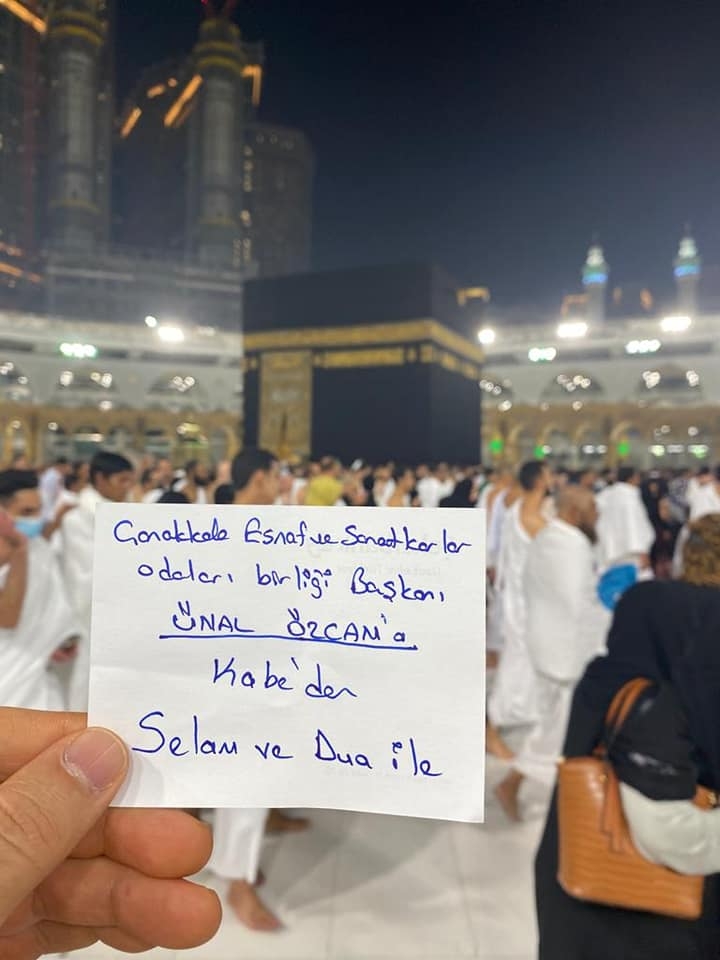 Çanakkale Esnaf ve Sanatkarlar
odaları birliği Başkanı
ÜNAL ÖZCAN'a
Kabe'den
Selam ve Dua ile